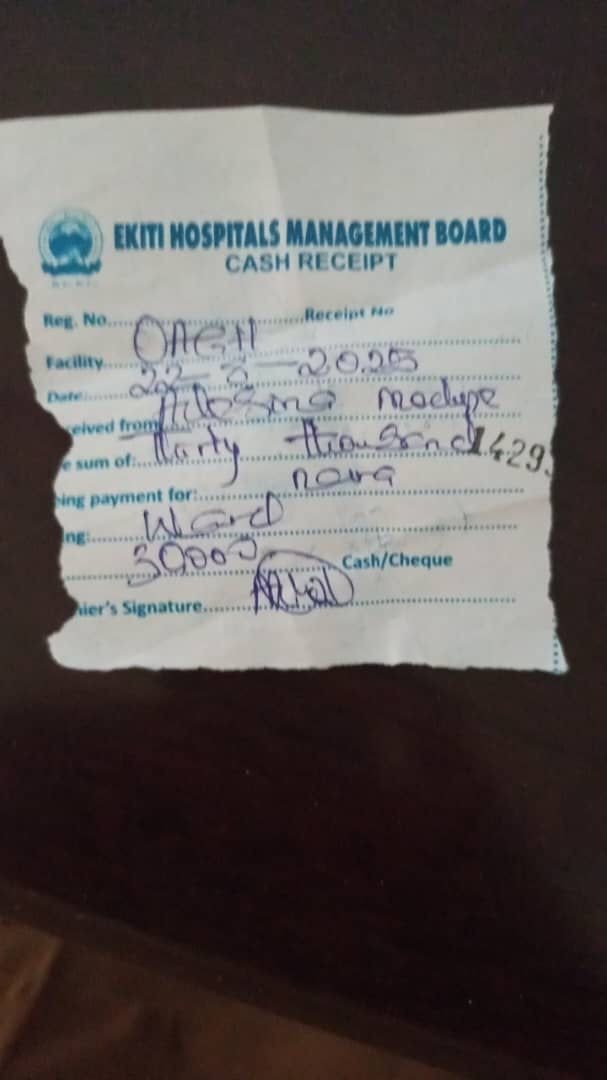 EKITI HOSPITALS MANAGEMENT BOARD
CASH RECEIPT
Reg. No. Receipt No
Facility OAGH
Date: 22-2-2025
ceived from modupe
e sum of: thousand 1429
ing payment for: naira
ng: Ward
30000 Cash/Cheque
hier's Signature